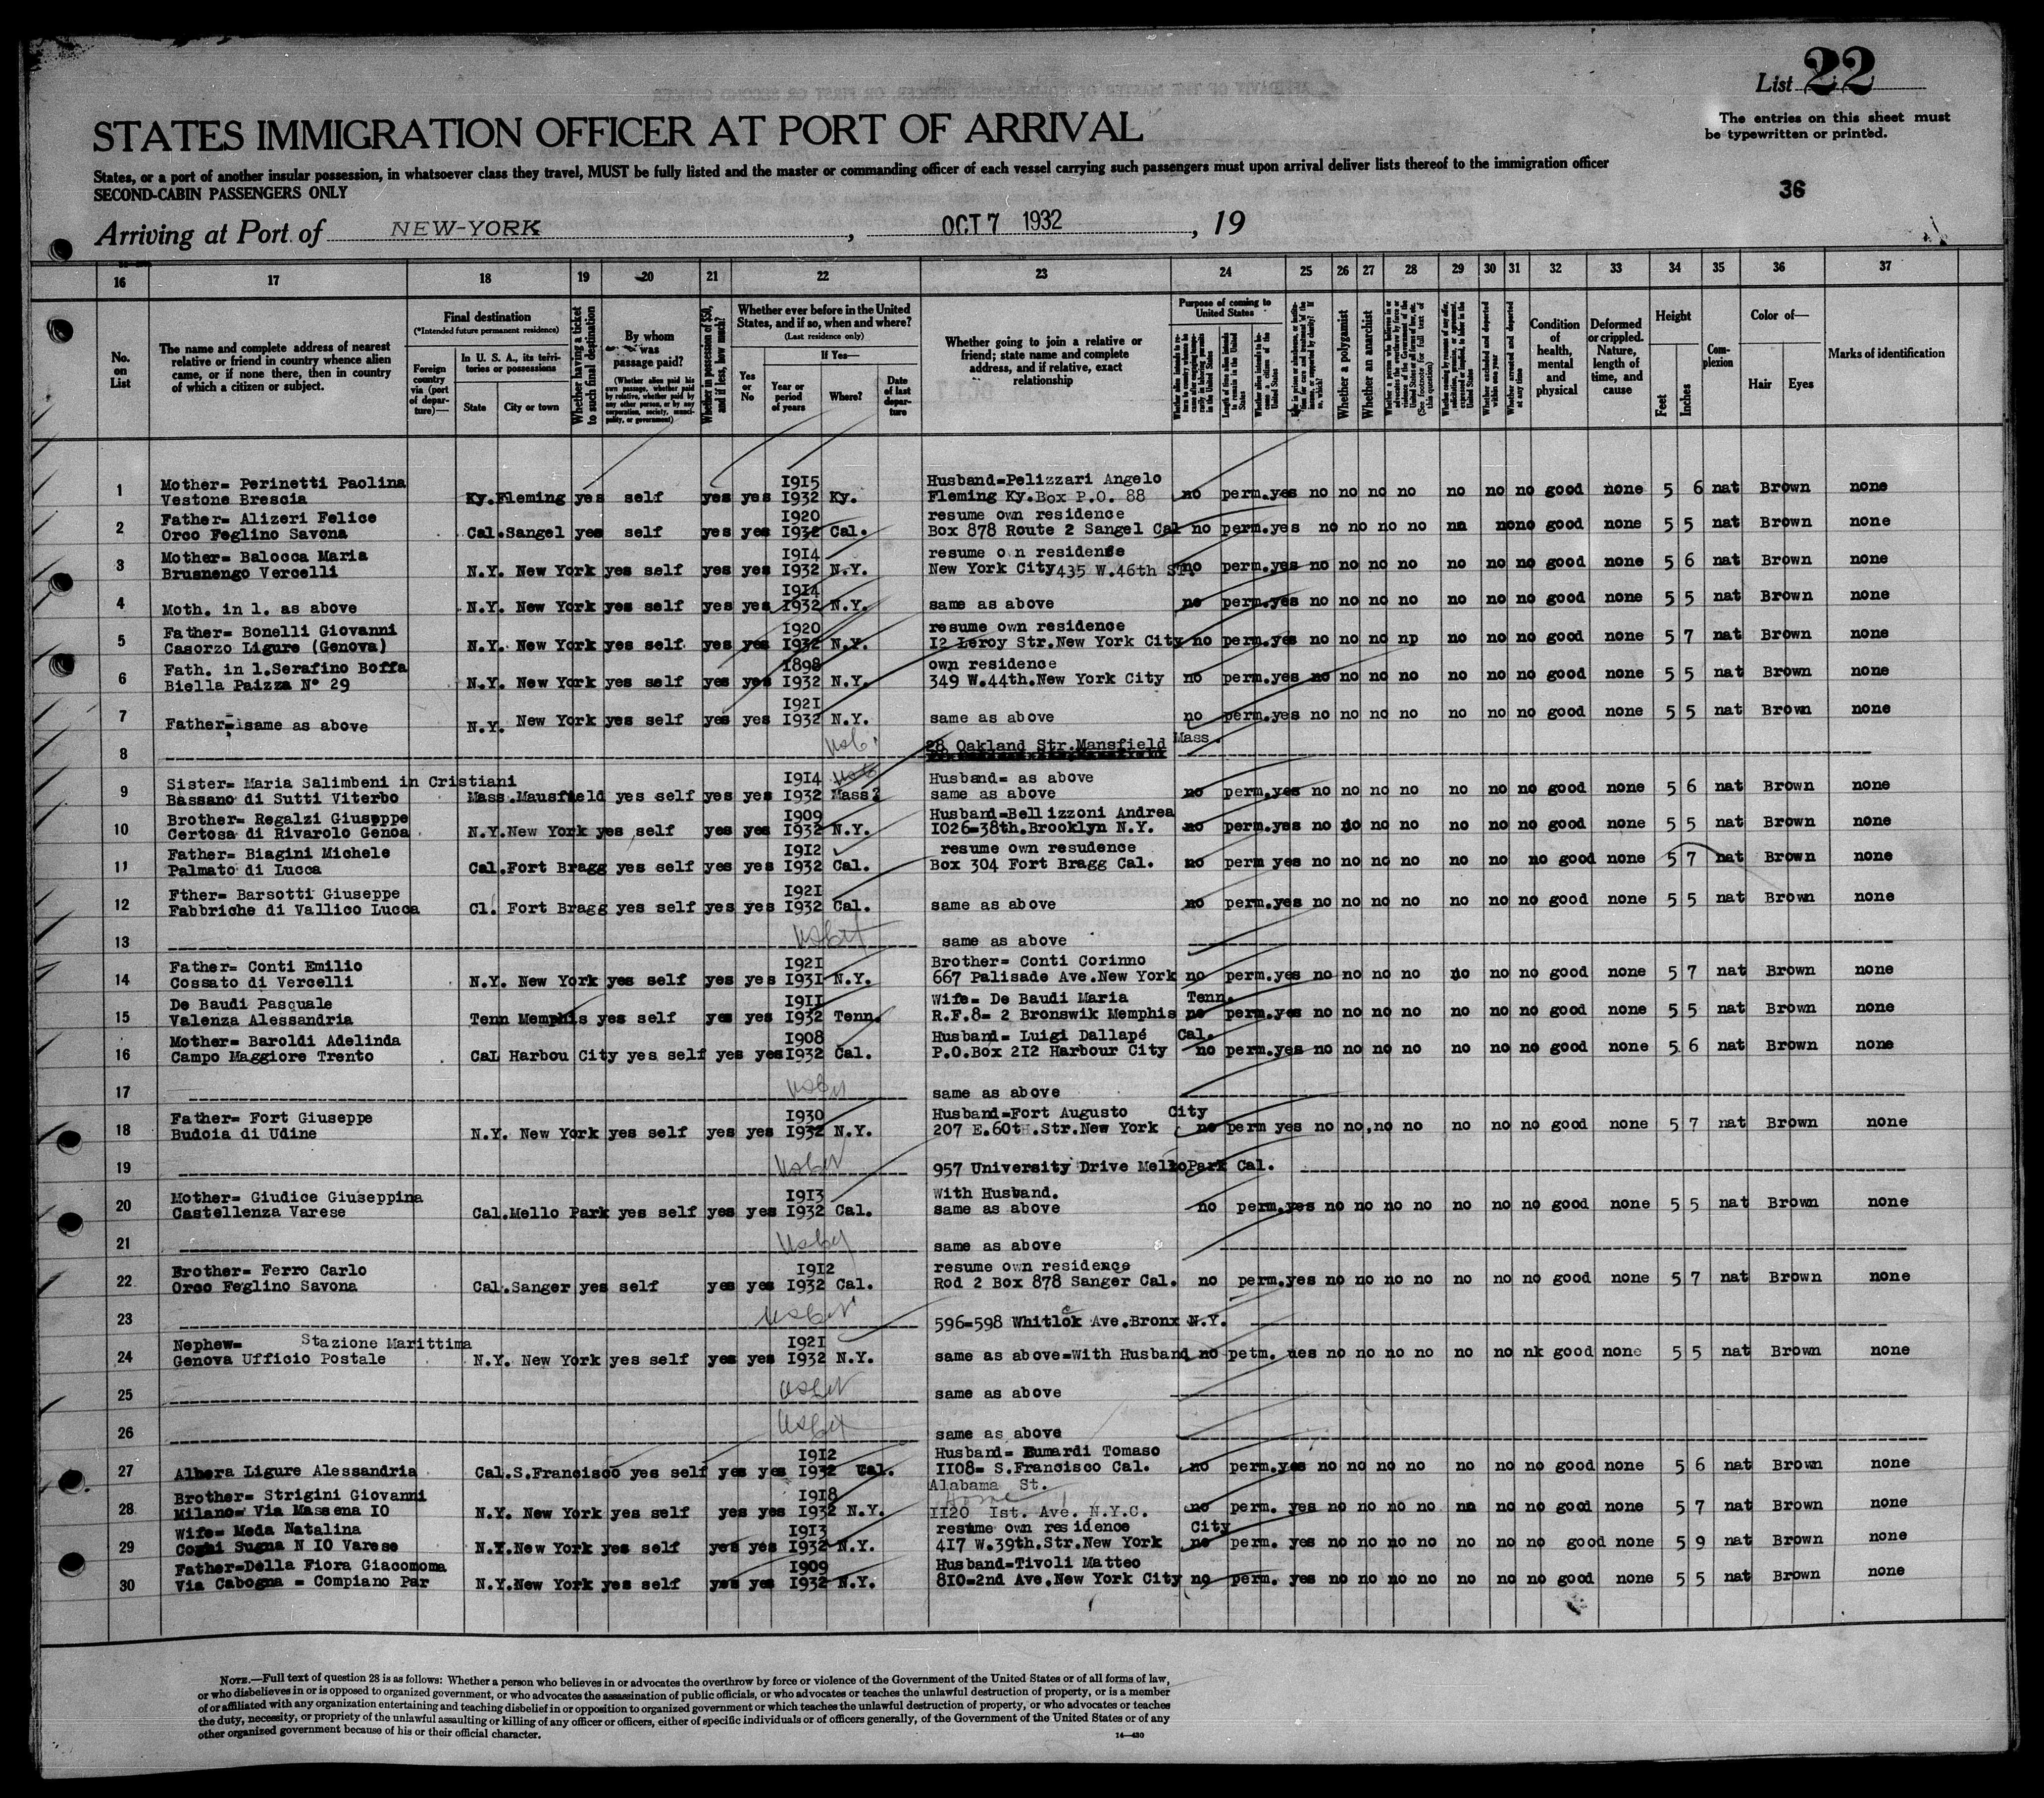 List 22
STATES IMMIGRATION OFFICER AT PORT OF ARRIVAL
The entries on this sheet must
be typewritten or printed.
States, or a port of another insular possession, in whatsoever class they travel, MUST be fully listed and the master or commanding officer of each vessel carrying such passengers must upon arrival deliver lists thereof to the immigration officer
SECOND-CABIN PASSENGERS ONLY
36
Arriving at Port of NEW-YORK, OCT 7 1932, 19
16 17 18 19 20 21 22 23 24 25 26 27 28 29 30 31 32 33 34 35 36 37
No. on List
The name and complete address of nearest relative or friend in country whence alien came, or if none there, then in country of which a citizen or subject.
Final destination
(*Intended future permanent residence)
Foreign country via (port of departure)—
In U. S. A., its territories or possessions
State
City or town
Whether having a ticket to such final destination
By whom was passage paid?
(Whether alien paid his own passage, whether paid by relative, whether paid by any other person, or by any corporation, society, municipality, or government)
Whether in possession of $50, and if less, how much?
Whether ever before in the United States, and if so, when and where?
(Last residence only)
Yes or No
If Yes—
Year or period of years
Where?
Date of last departure
Whether going to join a relative or friend; state name and complete address, and if relative, exact relationship
Purpose of coming to United States
Length of time alien intends to remain in the United States
Whether alien intends to become a citizen of the United States
Whether a polygamist
Whether an anarchist
Whether excluded and deported within one year
Whether arrested and deported at any time
Condition of health, mental and physical
Deformed or crippled. Nature, length of time, and cause
Height
Feet
Inches
Complexion
Color of—
Hair
Eyes
Marks of identification
1 Mother= Perinetti Paolina 1915 Husband=Pelizzari Angelo
Vestone Brescia Ky. Fleming yes self yes yes 1932 Ky. Fleming Ky.Box P.O. 88 no perm.yes no no no no no no no good none 5 6 nat Brown none
2 Father= Alizeri Felice 1920 resume own residence
Orco Feglino Savona Cal.Sangel yes self yes yes 1932 Cal. Box 878 Route 2 Sangel Cal no perm.yes no no no no nn nono good none 5 5 nat Brown none
3 Mother= Balocca Maria 1914 resume own residense
Brusnengo Vercelli N.Y. New York yes self yes yes 1932 N.Y. New York City 435 W.46th ST. no perm.yes no no no no no no no good none 5 6 nat Brown none
4 1914
Moth. in l. as above N.Y. New York yes self yes yes 1932 N.Y. same as above no perm.yes no no no no no no no good none 5 5 nat Brown none
5 Father= Bonelli Giovanni 1920 resume own residence
Casorzo Ligure (Genova) N.Y. New York yes self yes yes 1932 N.Y. 12 Leroy Str.New York City no perm.yes no no no np no no no good none 5 7 nat Brown none
6 Fath. in l.Serafino Boffa 1898 own residence
Biella Paizza N° 29 N.Y. New York yes self yes yes 1932 N.Y. 349 W.44th.New York City no perm.yes no no no no no no no good none 5 5 nat Brown none
7 1921
Father= same as above N.Y. New York yes self yes yes 1932 N.Y. same as above no perm.yes no no no no no no no good none 5 5 nat Brown none
8 28 Oakland Str.Mansfield Mass.
9 Sister= Maria Salimbeni in Cristiani 1914 Husband= as above
Bassano di Sutti Viterbo Mass.Mausfield yes self yes yes 1932 Mass? same as above no perm.yes no no no no no no no good none 5 6 nat Brown none
10 Brother= Regalzi Giuseppe 1909 Husband=Bellizzoni Andrea
Certosa di Rivarolo Genoa N.Y.New York yes self yes yes 1932 N.Y. 1026=38th.Brooklyn N.Y. no perm.yes no no no no no no no good none 5 5 nat Brown none
11 Father= Biagini Michele 1912 resume own resudence
Palmato di Lucca Cal.Fort Bragg yes self yes yes 1932 Cal. Box 304 Fort Bragg Cal. no perm yes no no no no no no no good none 5 7 nat Brown none
12 Fther= Barsotti Giuseppe 1921
Fabbriche di Vallico Lucca Cl. Fort Bragg yes self yes yes 1932 Cal. same as above no perm.yes no no no no no no no good none 5 5 nat Brown none
13 same as above
14 Father= Conti Emilio 1921 Brother= Conti Corinno
Cossato di Vercelli N.Y. New York yes self yes yes 1931 N.Y. 667 Palisade Ave.New York no perm.yes no no no no no no no good none 5 7 nat Brown none
15 De Baudi Pasquale 1911 Wife= De Baudi Maria Tenn.
Valenza Alessandria Tenn Memphis yes self yes yes 1932 Tenn. R.F.8= 2 Bronswik Memphis no perm.yes no no no no no no no good none 5 5 nat Brown none
16 Mother= Baroldi Adelinda 1908 Husband= Luigi Dallapé Cal.
Campo Maggiore Trento Cal Harbou City yes self yes yes 1932 Cal. P.O.Box 212 Harbour City no perm.yes no no no no no no no good none 5 6 nat Brown none
17 same as above
18 Father= Fort Giuseppe 1930 Husband=Fort Augusto City
Budoia di Udine N.Y. New York yes self yes yes 1932 N.Y. 207 E.60tH.Str.New York no perm yes no no, no no no no no good none 5 7 nat Brown none
19 957 University Drive MelloPark Cal.
20 Mother= Giudice Giuseppina 1913 With Husband.
Castellenza Varese Cal.Mello Park yes self yes yes 1932 Cal. same as above no perm.yes no no no no no no no good none 5 5 nat Brown none
21 same as above
22 Brother= Ferro Carlo 1912 resume own residence
Orco Feglino Savona Cal.Sanger yes self yes yes 1932 Cal. Rod 2 Box 878 Sanger Cal. no perm.yes no no no no no no no good none 5 7 nat Brown none
23 596=598 Whitlok Ave.Bronx N.Y.
24 Nephew= Stazione Marittima 1921
Genova Ufficio Postale N.Y. New York yes self yes yes 1932 N.Y. same as above=With Husband no petm. ues no no no no no no nk good none 5 5 nat Brown none
25 same as above
26 same as above
27 1912 Husband= Eumardi Tomaso
Albera Ligure Alessandria Cal.S.Francisco yes self yes yes 1932 Cal. 1108= S.Francisco Cal. no perm.yes no no no no no no no good none 5 6 nat Brown none
Alabama St.
28 Brother= Strigini Giovanni 1918 Home
Milano= Via Massena 10 N.Y. New York yes self yes yes 1932 N.Y. 1120 1st. Ave. N.Y.C. no perm. yes no no no no nn no no good none 5 7 nat Brown none
29 Wife= Meda Natalina 1913 resume own residence City
Coghi Sugna N 10 Varese N.Y.New York yes self yes yes 1932 N.Y. 417 W.39th.Str.New York no perm. yes no no no no no no no good none 5 9 nat Brown none
30 Father=Della Fiora Giacomoma 1909 Husband=Tivoli Matteo
Via Cabogna = Compiano Par N.Y.New York yes self yes yes 1932 N.Y. 810=2nd Ave.New York City no perm. yes no no no no no no no good none 5 5 nat Brown none
NOTE.—Full text of question 28 is as follows: Whether a person who believes in or advocates the overthrow by force or violence of the Government of the United States or of all forms of law,
or who disbelieves in or is opposed to organized government, or who advocates the assassination of public officials, or who advocates or teaches the unlawful destruction of property, or is a member
of or affiliated with any organization entertaining and teaching disbelief in or opposition to organized government or which teaches the unlawful destruction of property, or who advocates or teaches
the duty, necessity, or propriety of the unlawful assaulting or killing of any officer or officers, either of specific individuals or of officers generally, of the Government of the United States or of any
other organized government because of his or their official character.
14—430